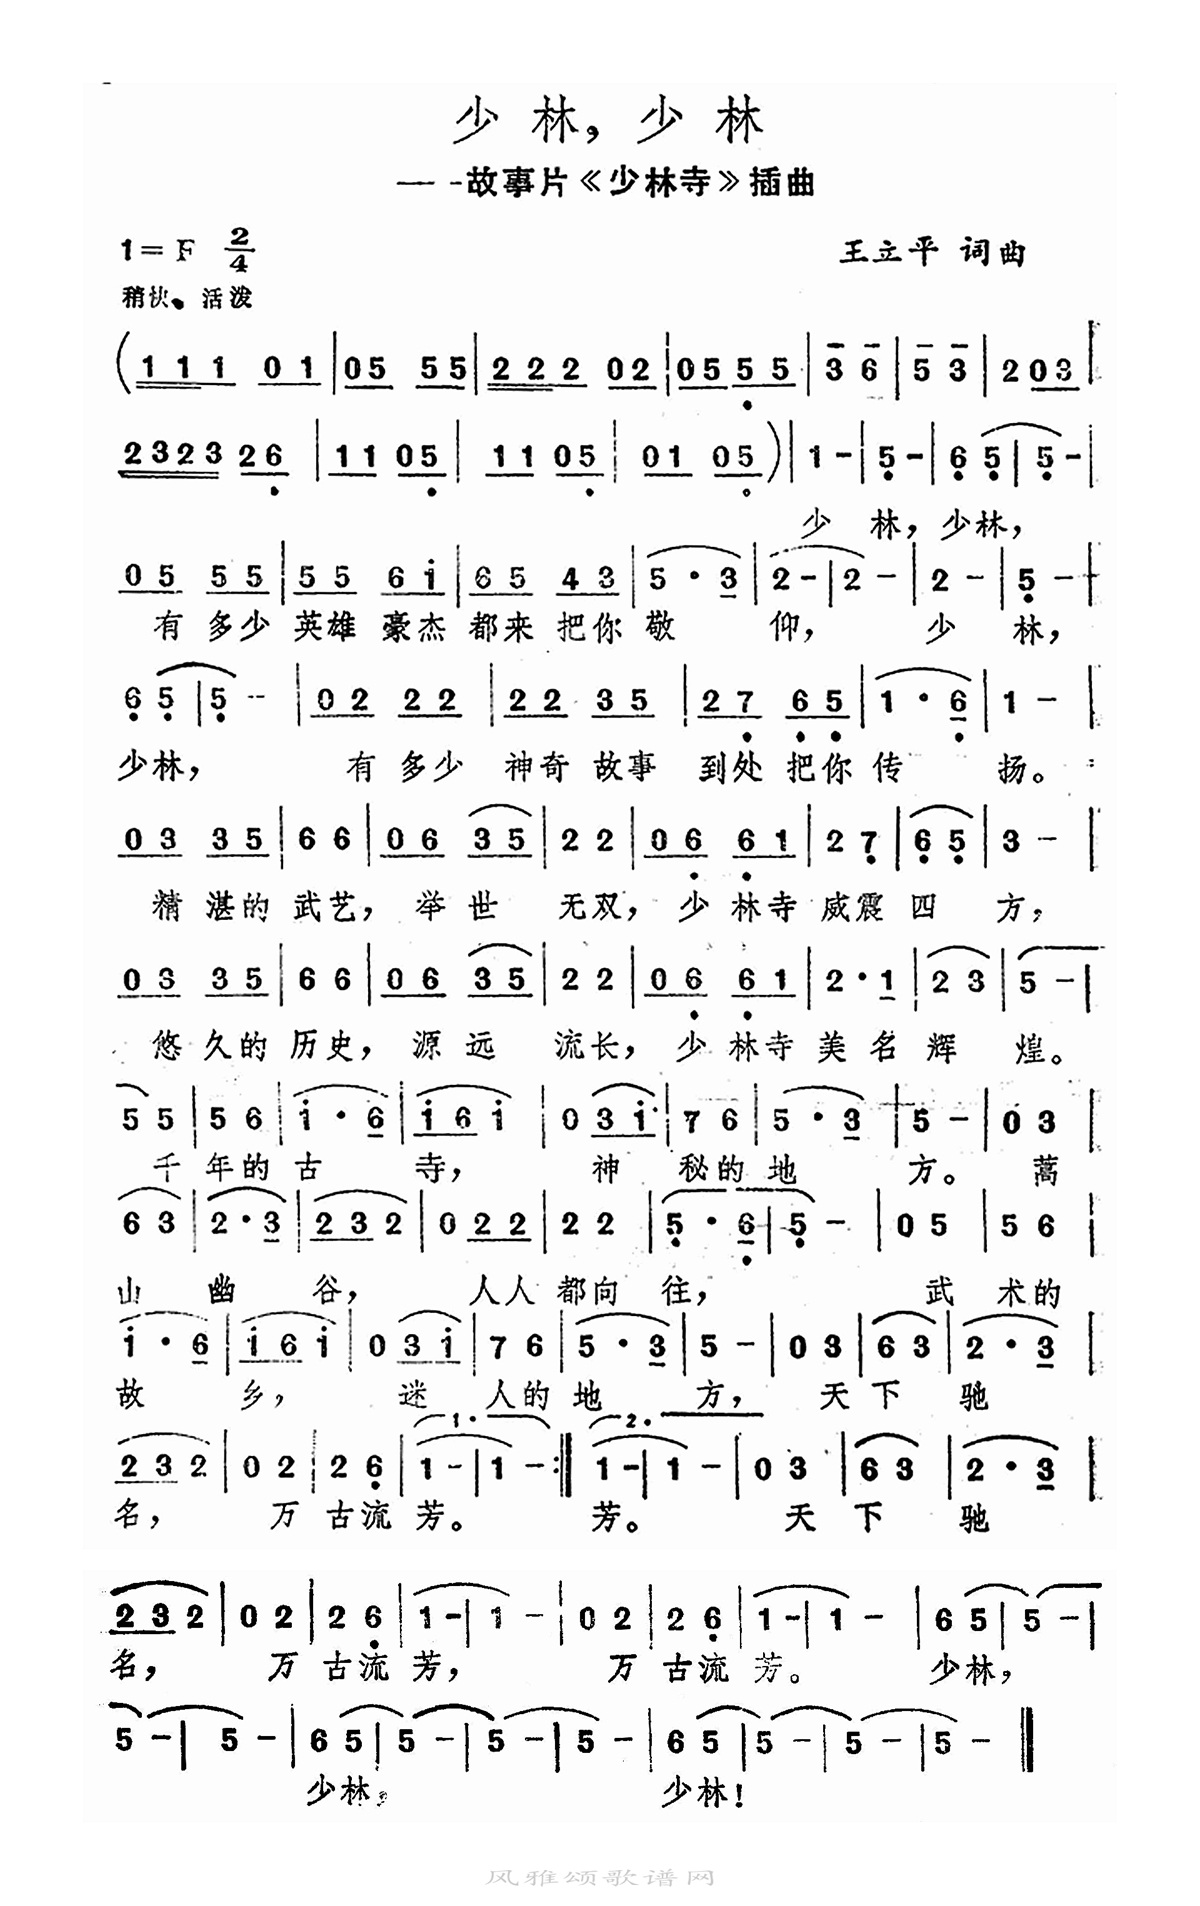 少林，少林
——故事片《少林寺》插曲
1=F 2/4 王立平 词曲
稍快、活泼
(1 1 1 0 1 | 0 5 5 5 | 2 2 2 0 2 | 0 5 5 5 | 3 6 | 5 3 | 2 0 3 |
2 3 2 3 2 6 | 1 1 0 5 | 1 1 0 5 | 0 1 0 5 ) | 1 - | 5 - | 6 5 | 5 - |
少 林，少林，
0 5 5 5 | 5 5 6 i | 6 5 4 3 | 5 · 3 | 2 - | 2 - | 2 - | 5 - |
有 多少 英雄 豪杰 都来 把你 敬 仰， 少 林，
6 5 | 5 - | 0 2 2 2 | 2 2 3 5 | 2 7 6 5 | 1 · 6 | 1 - |
少林， 有 多少 神奇 故事 到处 把你 传 扬。
0 3 3 5 | 6 6 | 0 6 3 5 | 2 2 | 0 6 6 1 | 2 7 | 6 5 | 3 - |
精 湛的 武艺，举 世 无双，少 林寺 威震 四 方，
0 3 3 5 | 6 6 | 0 6 3 5 | 2 2 | 0 6 6 1 | 2 · 1 | 2 3 | 5 - |
悠 久的 历史，源 远 流长，少 林寺 美 名 辉 煌。
5 5 | 5 6 | i · 6 | i 6 i | 0 3 i | 7 6 | 5 · 3 | 5 - | 0 3 |
千 年的 古 寺， 神 秘的 地 方。 蒿
6 3 | 2 · 3 | 2 3 2 | 0 2 2 | 2 2 | 5 · 6 | 5 - | 0 5 | 5 6 |
山 幽 谷， 人人 都向 往， 武 术的
i · 6 | i 6 i | 0 3 i | 7 6 | 5 · 3 | 5 - | 0 3 | 6 3 | 2 · 3 |
故 乡， 迷 人的 地 方， 天 下 驰
1. 2.
2 3 2 | 0 2 | 2 6 | 1 - | 1 - :‖ 1 - | 1 - | 0 3 | 6 3 | 2 · 3 |
名， 万 古流 芳。 芳。 天 下 驰
2 3 2 | 0 2 | 2 6 | 1 - | 1 - | 0 2 | 2 6 | 1 - | 1 - | 6 5 | 5 - |
名， 万 古流 芳， 万 古流 芳。 少林，
5 - | 5 - | 6 5 | 5 - | 5 - | 5 - | 6 5 | 5 - | 5 - | 5 - ‖
少林， 少林！
风雅颂歌谱网